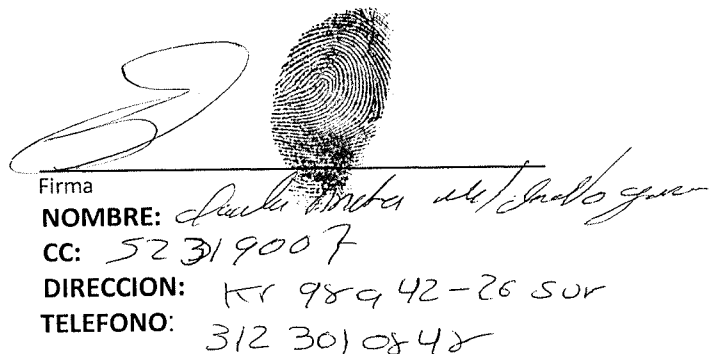 Firma
NOMBRE:
CC: 52319007
DIRECCION: Kr 98a 42-26 Sur
TELEFONO: 312 301 0848